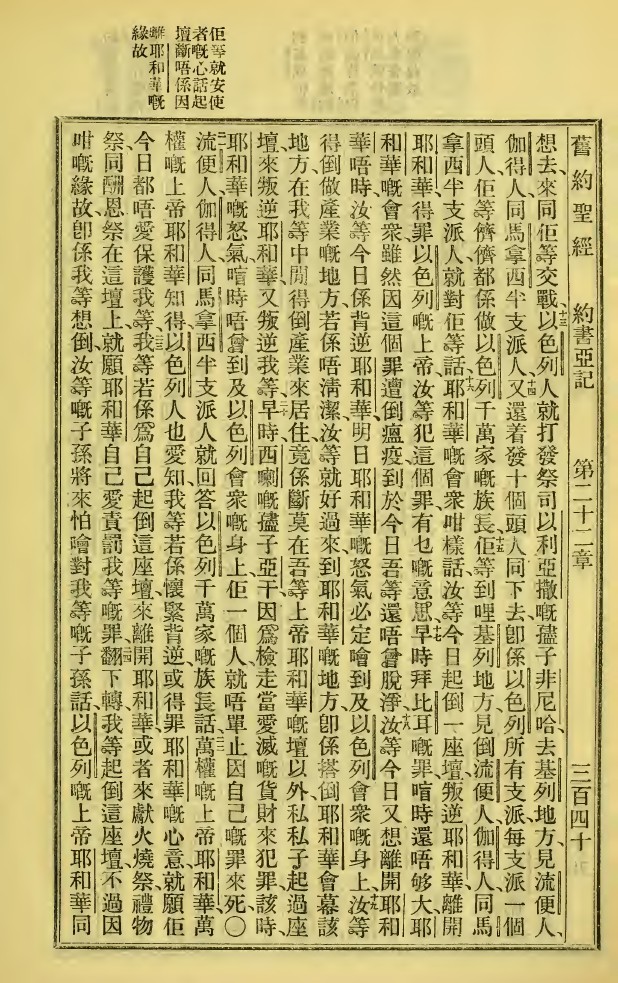 佢等就安使
者嘅心話起
壇斷唔係因
離耶和華嘅
緣故
舊約聖經 約書亞記 第二十二章 三百四十
想去、來同佢等交戰、十三以色列人就打發祭司以利亞撒嘅孻子非尼哈去基列地方、見流便人、
伽得人、同馬拿西半支派人、十四又還着發十個頭人同下去、卽係以色列所有支派、每支派一個
頭人、佢等儕儕都係做以色列千萬家嘅族長、十五佢等到哩基列地方、見倒流便人、伽得人、同馬
拿西半支派人、就對佢等話、十六耶和華嘅會衆咁樣話、汝等今日起倒一座壇、叛逆耶和華、離開
耶和華、得罪以色列嘅上帝、汝等犯這個罪有乜嘅意思、十七早時拜比耳嘅罪、喑時還唔够大、耶
和華嘅會衆雖然因這個罪遭倒瘟疫、到於今日吾等還唔曾脫淨、十八汝等今日又想離開耶和
華唔時、汝等今日係背逆耶和華、明日耶和華嘅怒氣必定噲到及以色列會衆嘅身上、十九汝等
得倒做產業嘅地方、若係唔淸潔、汝等就好過來、到耶和華嘅地方、卽係搭倒耶和華會幕該
地方、在我等中間得倒產業來居住、竟係斷莫在吾等上帝耶和華嘅壇以外、私私子起過座
壇、來叛逆耶和華、又叛逆我等、二十早時西喇嘅孻子亞干、因爲檢走當愛滅嘅貨財來犯罪、該時、
耶和華嘅怒氣喑時唔曾到及以色列會衆嘅身上、佢一個人、就唔單止因自己嘅罪來死、〇
二一流便人、伽得人、同馬拿西半支派人、就回答以色列千萬家嘅族長話、二二萬權嘅上帝耶和華、萬
權嘅上帝耶和華知得、以色列人也愛知、我等若係懷緊背逆、或得罪耶和華嘅心意、就願佢
今日都唔愛保護我等、二三我等若係爲自己起倒這座壇、來離開耶和華、或者來獻火燒祭禮物
祭、同酬恩祭在這壇上、就願耶和華自己愛責罰我等嘅罪、二四翻下轉我等起倒這座壇、不過因
咁嘅緣故、卽係我等想倒、汝等嘅子孫將來怕噲對我等嘅子孫話、以色列嘅上帝耶和華、同